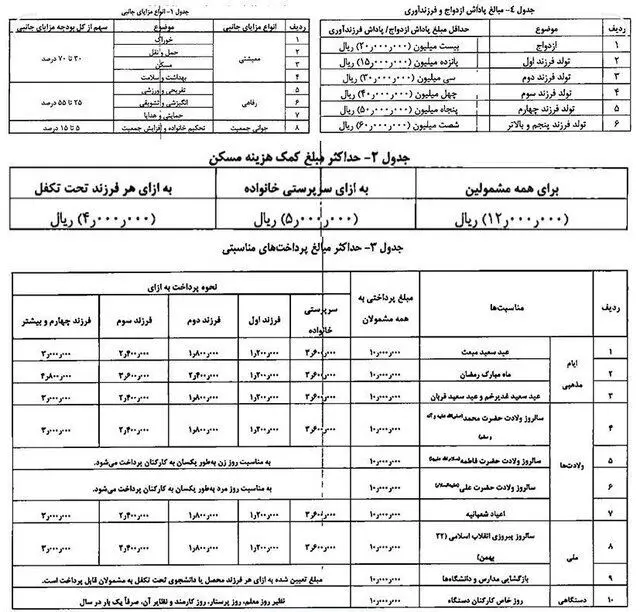 جدول ۱- انواع مزایای جانبی
ردیف | موضوع | انواع مزایای جانبی | سهم از کل بودجه مزایای جانبی
۱ | خوراک | معیشتی | ۳۰ تا ۷۰ درصد
۲ | حمل و نقل
۳ | مسکن
۴ | بهداشت و سلامت | رفاهی | ۲۵ تا ۵۵ درصد
۵ | تفریحی و ورزشی
۶ | انگیزشی و تشویقی
۷ | حمایتی و هدایا
۸ | تحکیم خانواده و افزایش جمعیت | جوانی جمعیت | ۵ تا ۱۵ درصد
جدول ۴- مبالغ پاداش ازدواج و فرزندآوری
ردیف | موضوع | حداقل مبلغ پاداش ازدواج/ پاداش فرزندآوری
۱ | ازدواج | بیست میلیون (۲۰٫۰۰۰٫۰۰۰) ریال
۲ | تولد فرزند اول | پانزده میلیون (۱۵٫۰۰۰٫۰۰۰) ریال
۳ | تولد فرزند دوم | سی میلیون (۳۰٫۰۰۰٫۰۰۰) ریال
۴ | تولد فرزند سوم | چهل میلیون (۴۰٫۰۰۰٫۰۰۰) ریال
۵ | تولد فرزند چهارم | پنجاه میلیون (۵۰٫۰۰۰٫۰۰۰) ریال
۶ | تولد فرزند پنجم و بالاتر | شصت میلیون (۶۰٫۰۰۰٫۰۰۰) ریال
جدول ۲- حداکثر مبلغ کمک هزینه مسکن
برای همه مشمولین | به ازای سرپرستی خانواده | به ازای هر فرزند تحت تکفل
(۱۲٫۰۰۰٫۰۰۰) ریال | (۵٫۰۰۰٫۰۰۰) ریال | (۴٫۰۰۰٫۰۰۰) ریال
جدول ۳- حداکثر مبالغ پرداخت‌های مناسبتی
ردیف | مناسبت‌ها | مبلغ پرداختی به همه مشمولان | نحوه پرداخت به ازای
سرپرستی خانواده | فرزند اول | فرزند دوم | فرزند سوم | فرزند چهارم و بیشتر
ایام مذهبی
۱ | عید سعید مبعث | ۱۰٫۰۰۰٫۰۰۰ | ۳٫۶۰۰٫۰۰۰ | ۱٫۲۰۰٫۰۰۰ | ۱٫۸۰۰٫۰۰۰ | ۲٫۴۰۰٫۰۰۰ | ۳٫۰۰۰٫۰۰۰
۲ | ماه مبارک رمضان | ۱۰٫۰۰۰٫۰۰۰ | ۳٫۶۰۰٫۰۰۰ | ۱٫۲۰۰٫۰۰۰ | ۲٫۴۰۰٫۰۰۰ | ۳٫۶۰۰٫۰۰۰ | ۴٫۸۰۰٫۰۰۰
۳ | عید سعید غدیرخم و عید سعید قربان | ۱۰٫۰۰۰٫۰۰۰ | ۳٫۶۰۰٫۰۰۰ | ۱٫۲۰۰٫۰۰۰ | ۱٫۸۰۰٫۰۰۰ | ۲٫۴۰۰٫۰۰۰ | ۳٫۰۰۰٫۰۰۰
ولادت‌ها
۴ | سالروز ولادت حضرت محمد (صلی‌الله علیه و آله و سلم) | ۱۰٫۰۰۰٫۰۰۰ | ۳٫۶۰۰٫۰۰۰ | ۱٫۲۰۰٫۰۰۰ | ۱٫۸۰۰٫۰۰۰ | ۲٫۴۰۰٫۰۰۰ | ۳٫۰۰۰٫۰۰۰
۵ | سالروز ولادت حضرت فاطمه | ۱۰٫۰۰۰٫۰۰۰ | به مناسبت روز زن به‌طور یکسان به کارکنان پرداخت می‌شود.
۶ | سالروز ولادت حضرت علی (علیه‌السلام) | ۱۰٫۰۰۰٫۰۰۰ | به مناسبت روز مرد به‌طور یکسان به کارکنان پرداخت می‌شود.
۷ | اعیاد شعبانیه | ۱۰٫۰۰۰٫۰۰۰ | ۳٫۶۰۰٫۰۰۰ | ۱٫۲۰۰٫۰۰۰ | ۱٫۸۰۰٫۰۰۰ | ۲٫۴۰۰٫۰۰۰ | ۳٫۰۰۰٫۰۰۰
ملی
۸ | سالروز پیروزی انقلاب اسلامی (۲۲ بهمن) | ۱۰٫۰۰۰٫۰۰۰ | ۳٫۶۰۰٫۰۰۰ | ۱٫۲۰۰٫۰۰۰ | ۱٫۸۰۰٫۰۰۰ | ۲٫۴۰۰٫۰۰۰ | ۳٫۰۰۰٫۰۰۰
۹ | بازگشایی مدارس و دانشگاه‌ها | ۱۰٫۰۰۰٫۰۰۰ | مبلغ تعیین شده به ازای هر فرزند محصل یا دانشجوی تحت تکفل به مشمولان قابل پرداخت است.
دستگاهی
۱۰ | روز خاص کارکنان دستگاه | ۱۰٫۰۰۰٫۰۰۰ | نظیر روز معلم، روز پرستار، روز کارمند و نظایر آن، صرفاً یک بار در سال